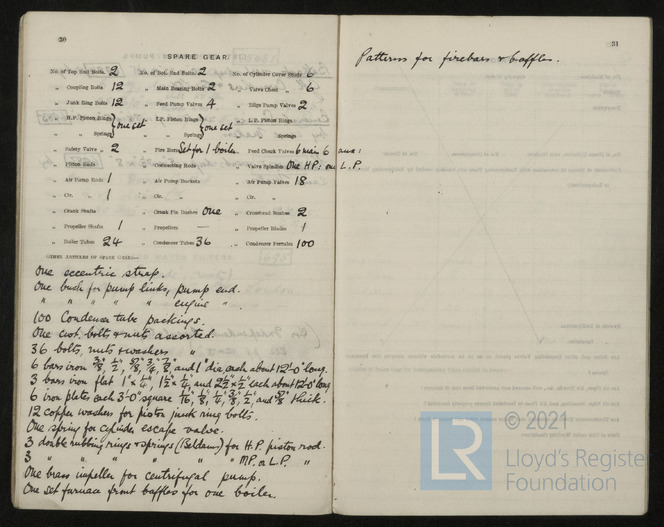 30
SPARE GEAR.
No. of Top End Bolts 2 No. of Bot. End Bolts 2 No. of Cylinder Cover Studs 6
„ Coupling Bolts 12 „ Main Bearing Bolts 2 „ Valve Chest „ 6
„ Junk Ring Bolts 12 „ Feed Pump Valves 4 „ Bilge Pump Valves 2
„ H.P. Piston Rings } one set „ I.P. Piston Rings } one set „ L.P. Piston Rings
„ „ Springs „ „ Springs „ „ Springs
„ Safety Valve „ 2 „ Fire Bars Set for 1 boiler „ Feed Check Valves 6 main 6 aux:
„ Piston Rods „ Connecting Rods „ Valve Spindles One H.P: one L.P.
„ Air Pump Rods 1 „ Air Pump Buckets „ Air Pump Valves 18
„ Cir. „ 1 „ Cir. „ „ Cir. „
„ Crank Shafts „ Crank Pin Bushes one „ Crosshead Bushes 2
„ Propeller Shafts 1 „ Propellers — „ Propeller Blades 1
„ Boiler Tubes 24 „ Condenser Tubes 36 „ Condenser Ferrules 100
OTHER ARTICLES OF SPARE GEAR:—
One eccentric strap.
One bush for pump links, pump end.
„ „ „ „ „ engine „ .
100 Condenser tube packings.
One cwt. bolts & nuts assorted.
36 bolts, nuts & washers „
6 bars iron 3/8", 1/2", 5/8", 3/4", 7/8", and 1" dia, each about 12'-0" long.
3 bars iron flat 1" x 1/4", 1 1/2" x 1/4", and 2 1/2" x 1/2" each about 12'-0" long
6 iron plates each 3'-0" square 1/16", 1/8", 1/4", 3/8", 1/2", and 5/8" thick.
12 copper washers for piston junk ring bolts.
One spring for cylinder escape valve.
3 double rubbing rings & springs (Beldams) for H.P. piston rod.
3 „ „ „ „ „ M.P. & L.P. „
One brass impeller for centrifugal pump.
One set furnace front baffles for one boiler.
31
Patterns for firebars & baffles.
© 2021
LR
Lloyd's Register
Foundation